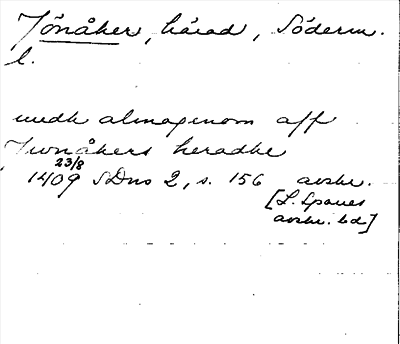 Jönåker, härad, Söderm.
l.
medh almogenom aff
Jwnåkers heradhe
23/8
1409 SDns 2, s. 156 avskr.
[L. Sparres
avskr. bd]